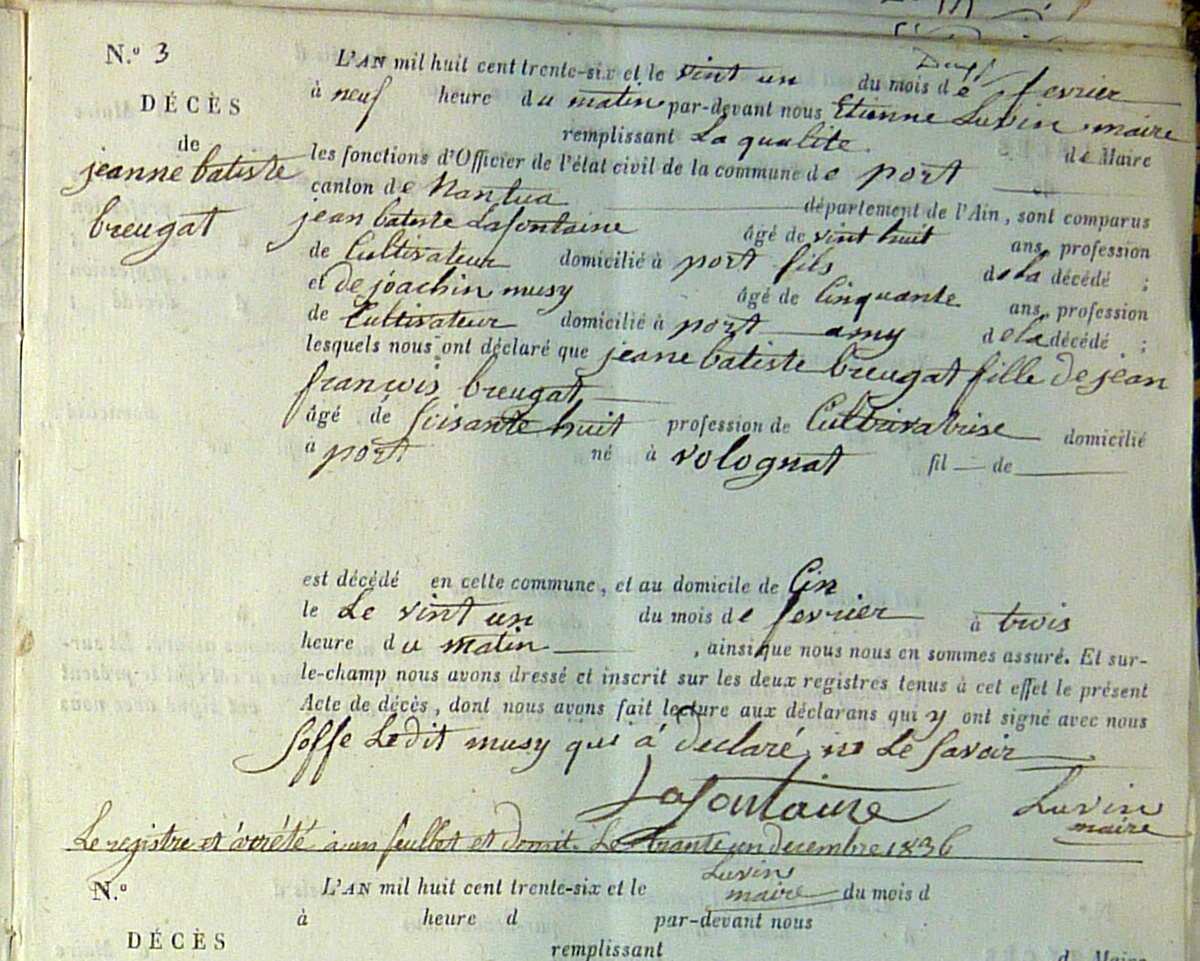 N.º 3
DÉCÈS
de
jeanne batiste
breugat
L'AN mil huit cent trente-six et le vint un du mois de fevrier
à neuf heure du matin par-devant nous Etienne Luvin maire
remplissant La qualite de Maire
les fonctions d'Officier de l'état civil de la commune de port
canton de Nantua département de l'Ain, sont comparus
jean batiste Lafontaine âgé de vint huit ans, profession
de Cultivateur domicilié à port fils de la décédé ;
et de joachin musy âgé de Cinquante ans, profession
de Cultivateur domicilié à port amy de la décédé ;
lesquels nous ont déclaré que jeane batiste breugat fille de jean
francois breugat
âgé de soisante huit profession de Cultivatrise domicilié
à port né à volognat fil — de
est décédé en cette commune, et au domicile de Cin
le Le vint un du mois de fevrier à trois
heure du matin , ainsi que nous nous en sommes assuré. Et sur-
le-champ nous avons dressé et inscrit sur les deux registres tenus à cet effet le présent
Acte de décès, dont nous avons fait lecture aux déclarans qui y ont signé avec nous
soffe Ledit musy qui á déclaré ne Le savoir
Lafontaine Luvin
maire
Le registre et árrété á un feulliet et demit. Le trante un decembre 1836
Luvin
maire
N.º L'AN mil huit cent trente-six et le du mois d
à heure d par-devant nous
DÉCÈS remplissant d Maire